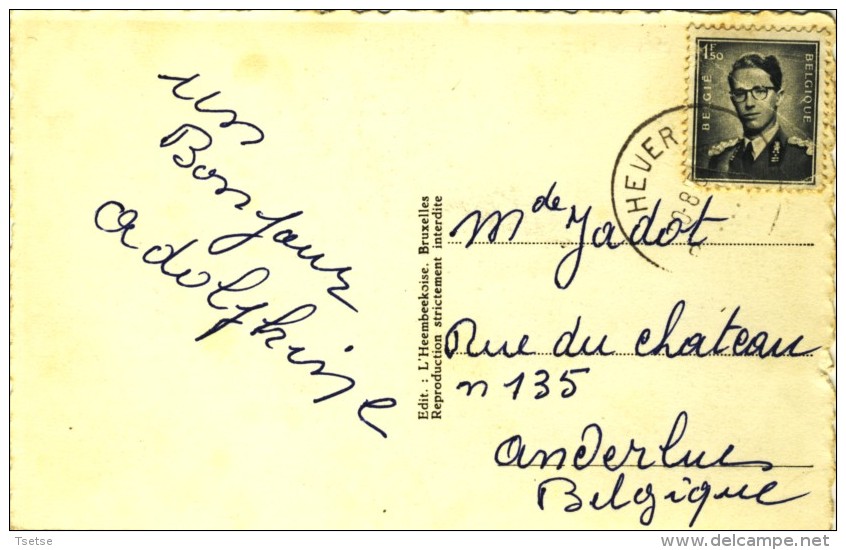 un
Bonjour
adolphine
Edit. : L'Heembeekoise. Bruxelles
Reproduction strictement interdite
1F50
BELGIË
BELGIQUE
HEVER
Mde Jadot
Rue du chateau
n 135
anderlues
Belgique
Tsetse
www.delcampe.net